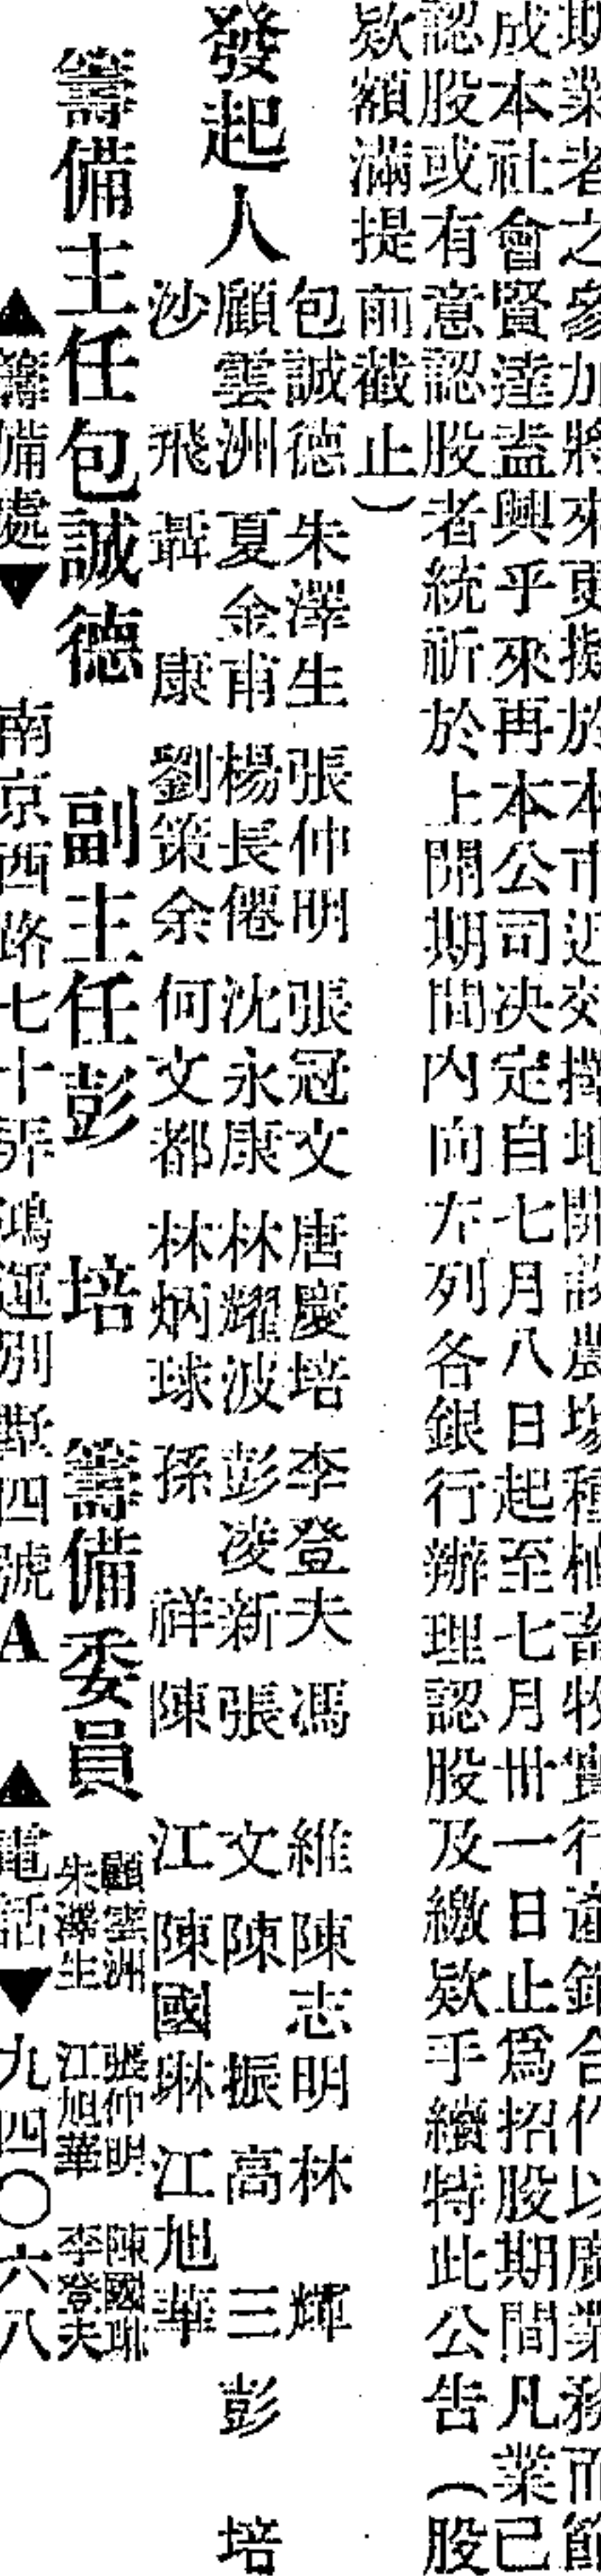 期業者之參加將來更擬於本市近郊擇地開設農場種植畜牧實行產銷合作以廣業務而節
成本社會賢達盍興乎來再本公司决定自七月八日起至七月卅一日止爲招股期間凡業已
認股或有意認股者統祈於上開期間内向左列各銀行辦理認股及繳欵手續特此公告（股
欵額滿提前截止）
發起人
包誠德 朱澤生 張仲明 張冠文 唐慶培 李登夫 馮維 陳志明 林輝
顧雲洲 夏金甫 楊長僊 沈永康 林耀波 彭凌新 張文 陳振 高三 彭培
沙飛 聶康 劉策余 何文都 林炳球 孫祥 陳江 陳國琳 江旭華
籌備主任包誠德 副主任彭培 籌備委員
顧雲洲 張仲明 陳國琳
朱澤生 江旭華 李登夫
▲籌備處▼ 南京西路七十弄鴻運別墅四號A ▲電話▼九四〇六八